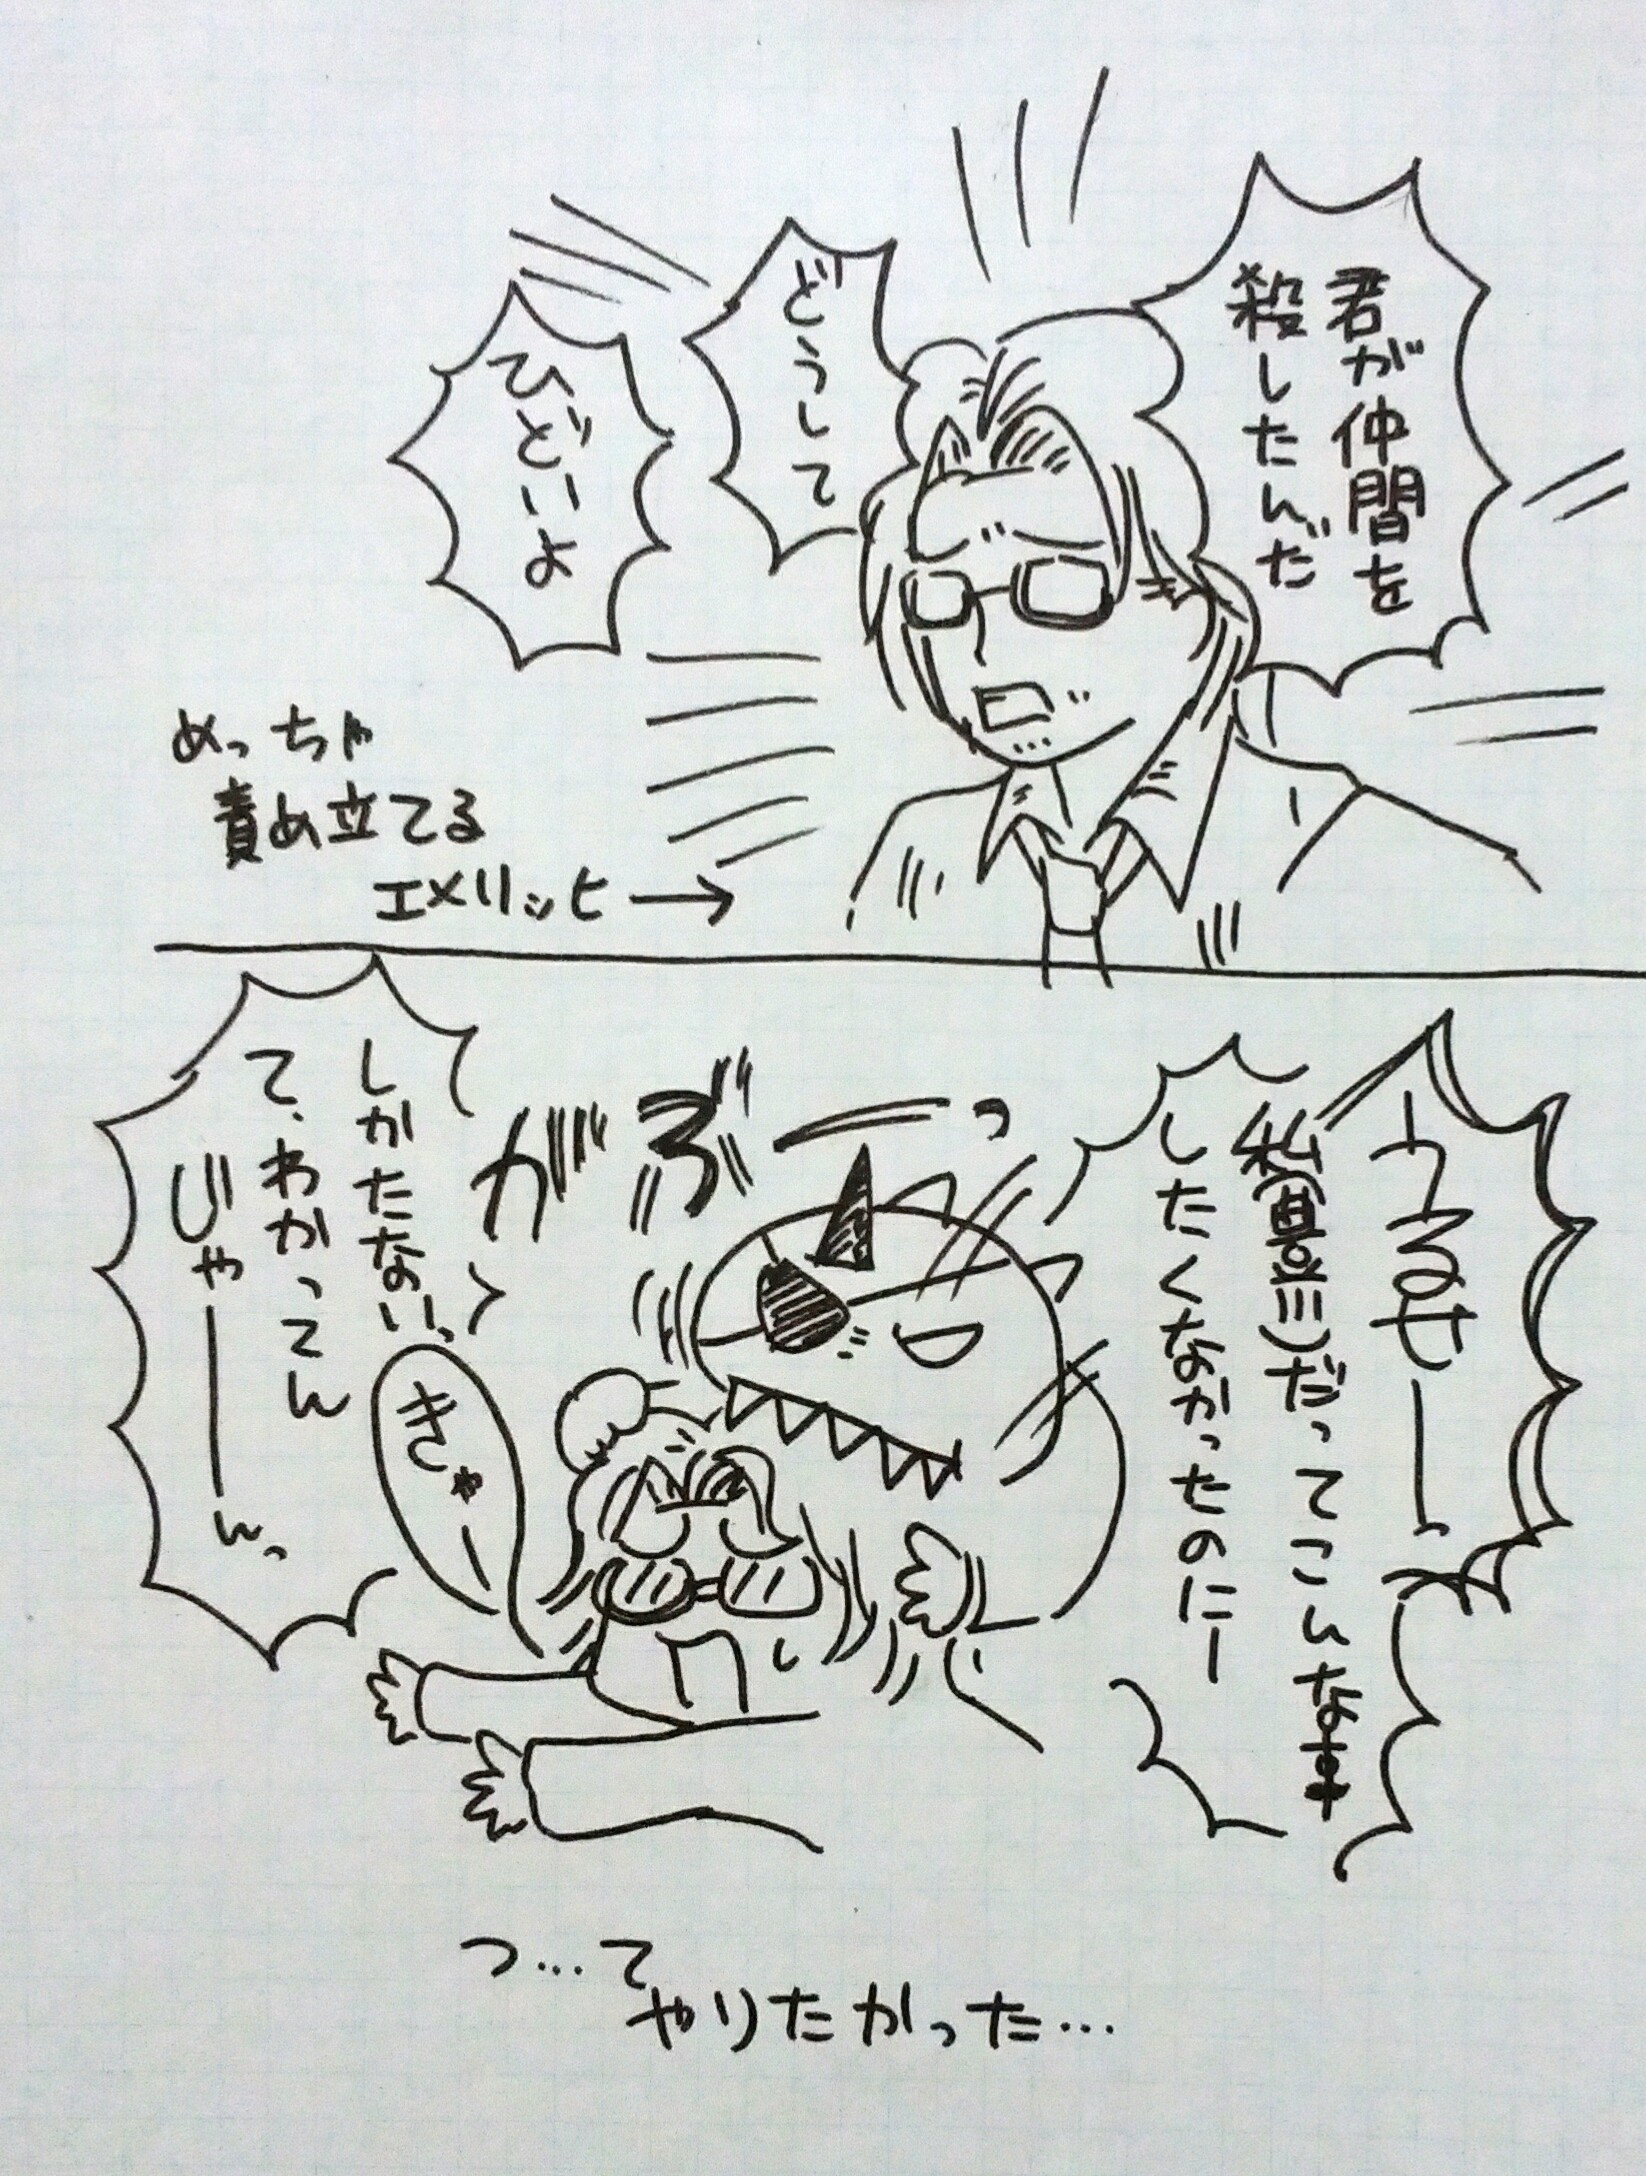 君が仲間を
殺したんだ
どうして
ひどいよ
めっちゃ
責め立てる
エメリッヒ→
うるせーーっ
だってこんなま
したくなかったのにー
がぶーっ
しかたないっ
て、わかってん
じゃーーんっ
きゃー
っ…て
やりたかった…